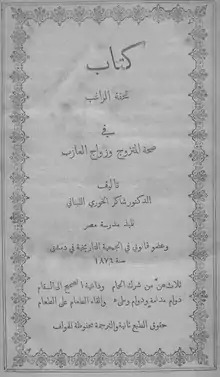 كتاب
تحفة الراغب
في
صحة المتزوج وزواج العازب
تأليف
الدكتور شاكر الخوري اللبناني
تلميذ مدرسة مصر
وعضو قانوني في الجمعية التاريخية في دمشق
سنة ١٨٧٦
ثلاث هنّ من شرك الحمام وداعية الصحيح الى السقام
دوام مدامة ودوام وطىء وإلقاء الطعام على الطعام
حقوق الطبع ثانية والترجمة محفوظة للمؤلف